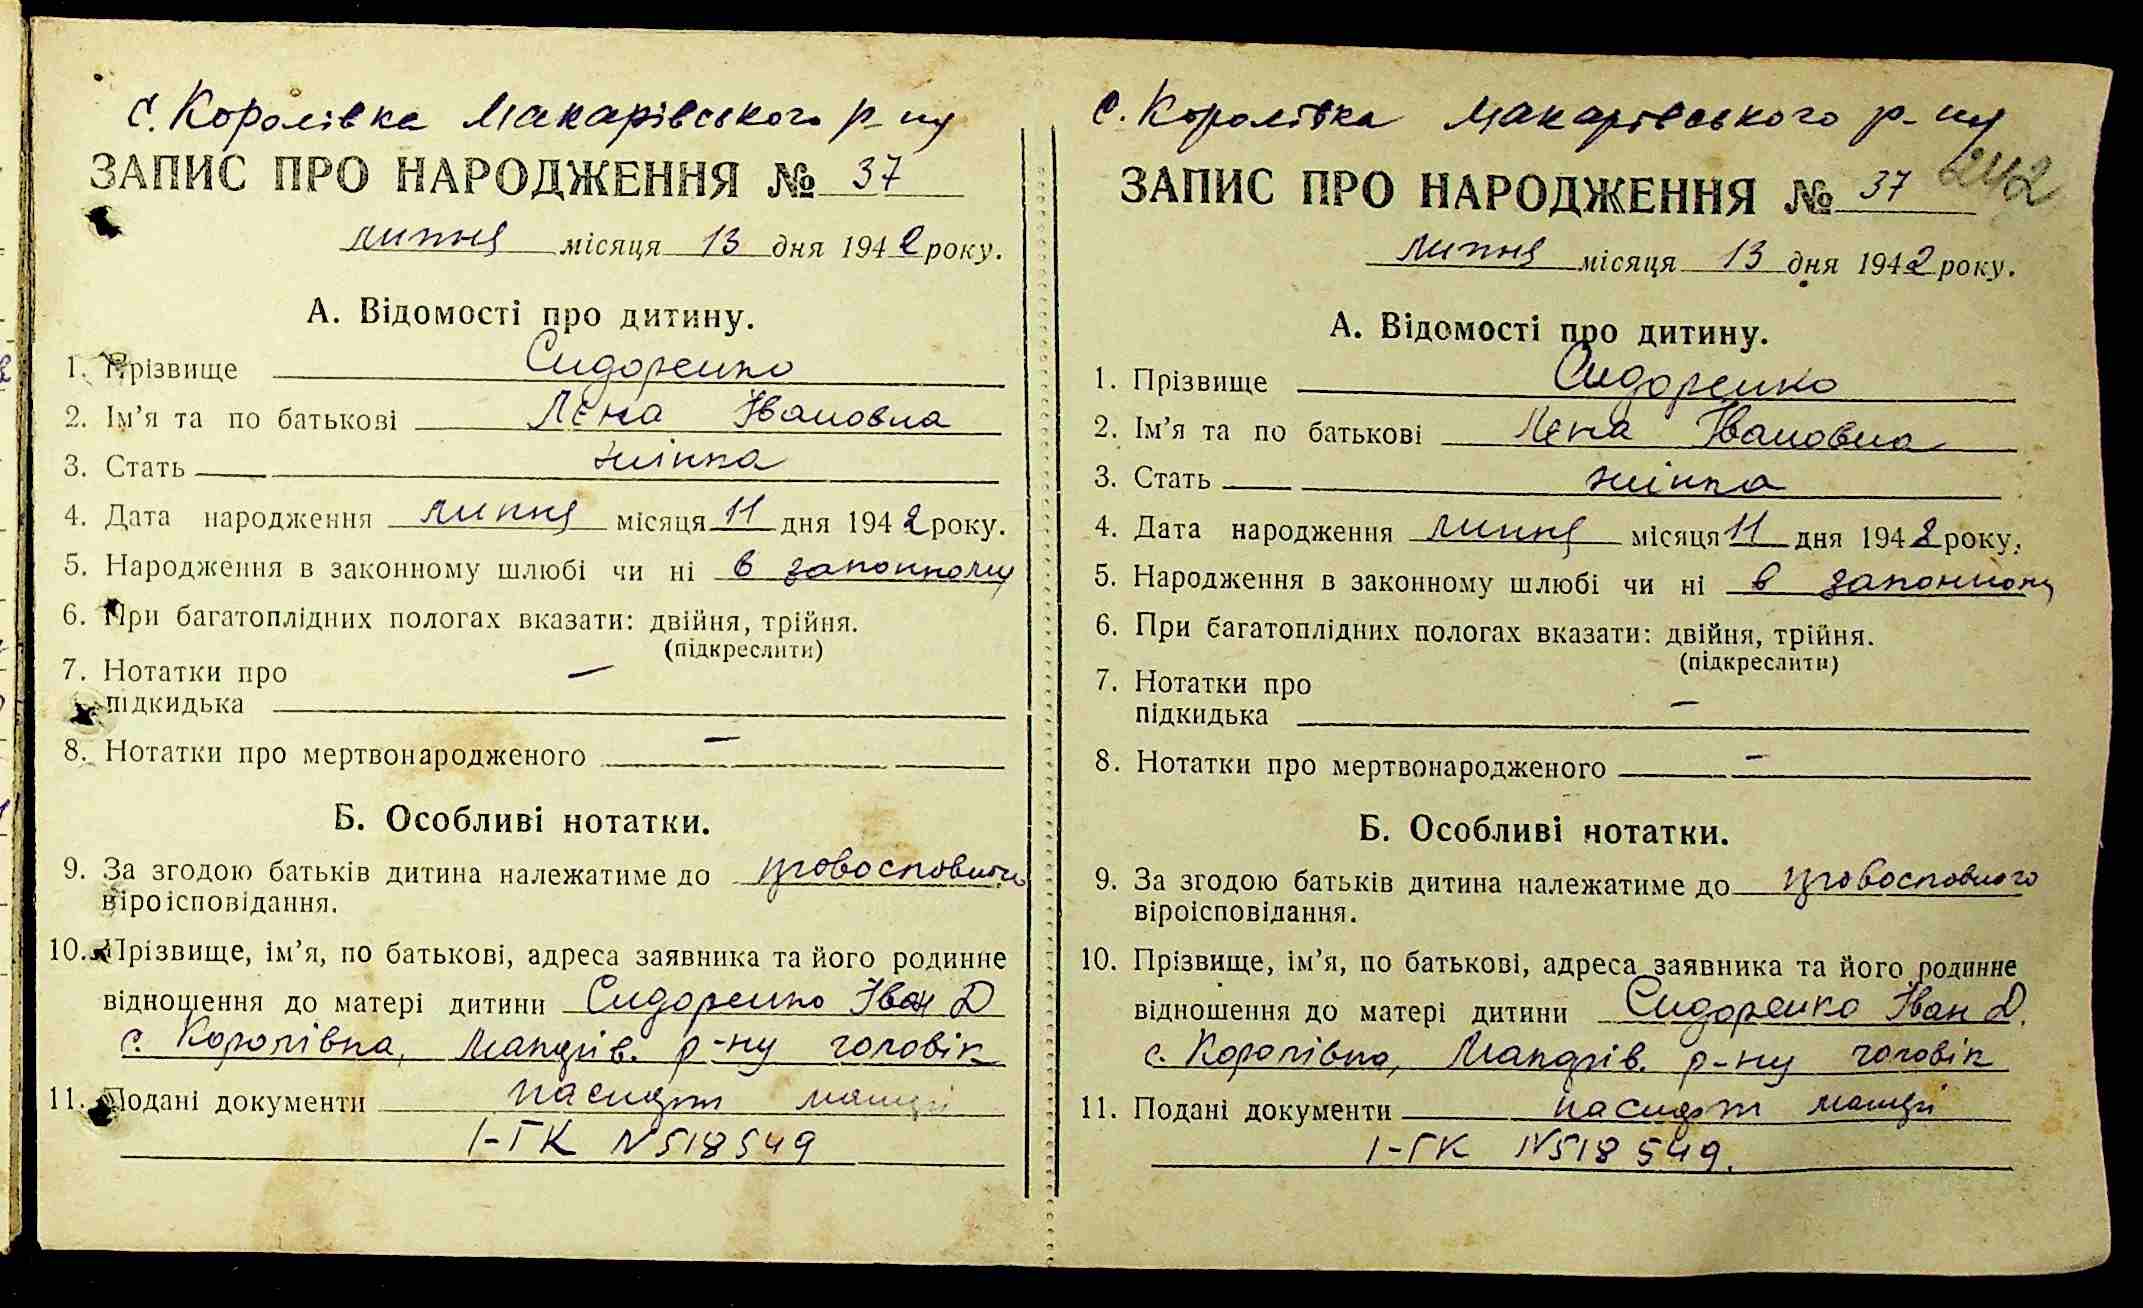 с. Королівка Макарівського р-ну
ЗАПИС ПРО НАРОДЖЕННЯ № 37
липня місяця 13 дня 1942 року.
А. Відомості про дитину.
1. Прізвище Сидоренко
2. Ім’я та по батькові Лєна Івановна
3. Стать жінка
4. Дата народження липня місяця 11 дня 1942 року.
5. Народження в законному шлюбі чи ні в законному
6. При багатоплідних пологах вказати: двійня, трійня.
(підкреслити)
7. Нотатки про –
підкидька
8. Нотатки про мертвонародженого –
Б. Особливі нотатки.
9. За згодою батьків дитина належатиме до
віроісповідання.
10. Прізвище, ім’я, по батькові, адреса заявника та його родинне
відношення до матері дитини Сидоренко Іван Д
с. Королівка, Макарів. р-ну чоловік
11. Подані документи паспорт матері
I-ГК N518549
с. Королівка Макарівського р-ну
242
ЗАПИС ПРО НАРОДЖЕННЯ № 37
липня місяця 13 дня 1942 року.
А. Відомості про дитину.
1. Прізвище Сидоренко
2. Ім’я та по батькові Лєна Івановна
3. Стать жінка
4. Дата народження липня місяця 11 дня 1942 року.
5. Народження в законному шлюбі чи ні в законному
6. При багатоплідних пологах вказати: двійня, трійня.
(підкреслити)
7. Нотатки про –
підкидька
8. Нотатки про мертвонародженого –
Б. Особливі нотатки.
9. За згодою батьків дитина належатиме до
віроісповідання.
10. Прізвище, ім’я, по батькові, адреса заявника та його родинне
відношення до матері дитини Сидоренко Іван Д.
с. Королівка, Макарів. р-ну чоловік
11. Подані документи паспорт матері
I-ГК N518549.